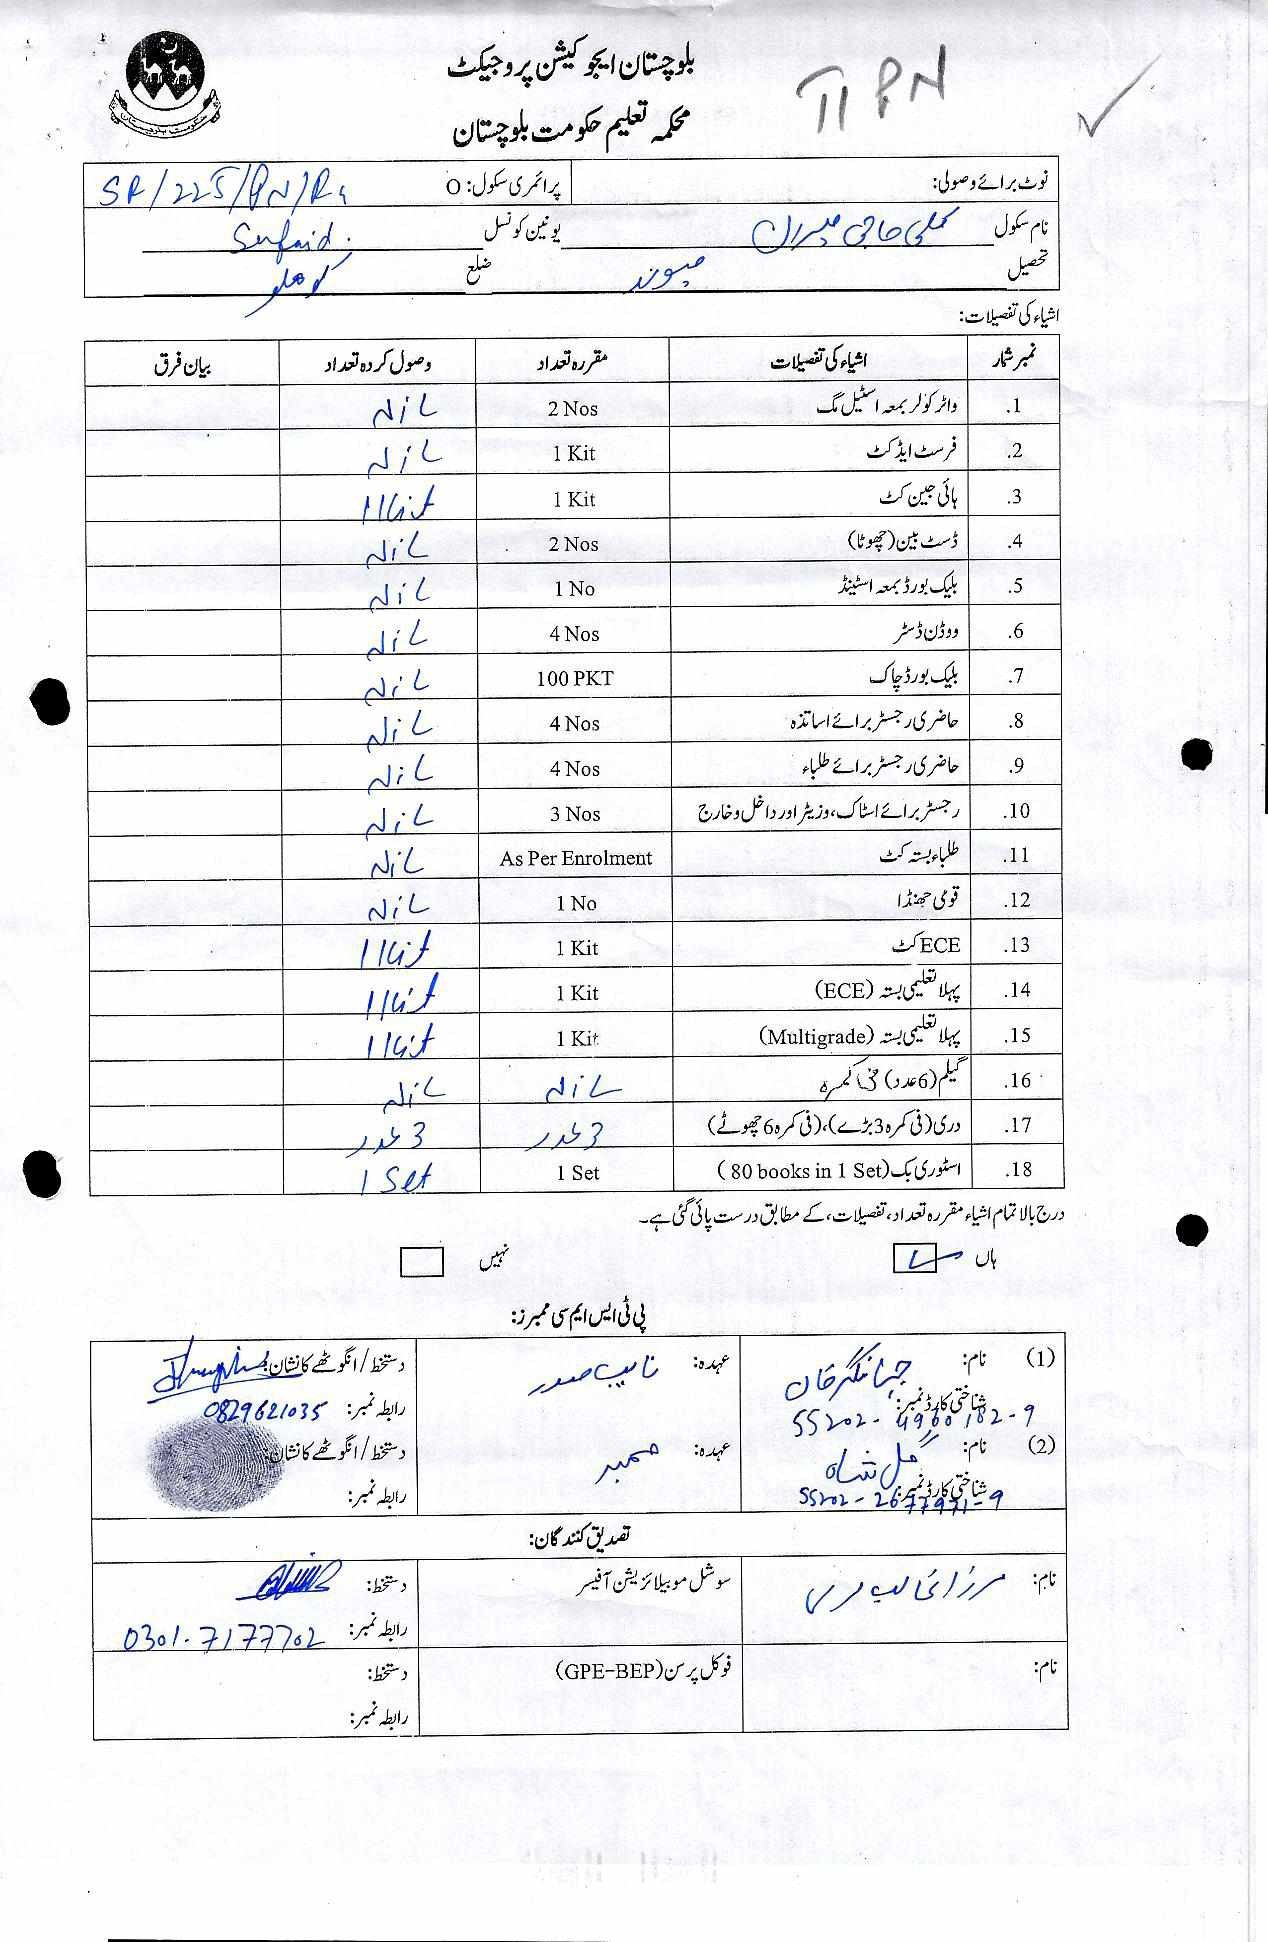 بلوچستان ایجوکیشن پروجیکٹ
TI PN
محکمہ تعلیم حکومت بلوچستان
حکومت بلوچستان
نوٹ برائے وصولی: پرائمری سکول: O SR/225/PN/R4
نام سکول کلی حاجی میران یونین کونسل Sufaid
تحصیل میوند ضلع کوہلو
اشیاء کی تفصیلات:
نمبر شمار اشیاء کی تفصیلات مقررہ تعداد وصول کردہ تعداد بیان فرق
1. واٹر کولر بمعہ اسٹیل مگ 2 Nos Nil
2. فرسٹ ایڈ کٹ 1 Kit Nil
3. ہائی جین کٹ 1 Kit 1 Kit
4. ڈسٹ بین (چھوٹا) 2 Nos Nil
5. بلیک بورڈ بمعہ اسٹینڈ 1 No Nil
6. ووڈن ڈسٹر 4 Nos Nil
7. بلیک بورڈ چاک 100 PKT Nil
8. حاضری رجسٹر برائے اساتذہ 4 Nos Nil
9. حاضری رجسٹر برائے طلباء 4 Nos Nil
10. رجسٹر برائے اسٹاک، وزیٹر اور داخل و خارج 3 Nos Nil
11. طلباء بستہ کٹ As Per Enrolment Nil
12. قومی جھنڈا 1 No Nil
13. ECE کٹ 1 Kit 1 Kit
14. پہلا تعلیمی بستہ (ECE) 1 Kit 1 Kit
15. پہلا تعلیمی بستہ (Multigrade) 1 Kit 1 Kit
16. گیلم (6 عدد) فی کمرہ Nil Nil
17. دری (فی کمرہ 3 بڑے)، (فی کمرہ 6 چھوٹے) 3 عدد 3 عدد
18. اسٹوری بک (80 books in 1 Set) 1 Set 1 Set
درج بالا تمام اشیاء مقررہ تعداد، تفصیلات، کے مطابق درست پائی گئی ہے۔
ہاں نہیں
پی ٹی ایس ایم سی ممبرز:
(1) نام: جہانگیر خان عہدہ: نایب صدر دستخط/انگوٹھے کا نشان:
شناختی کارڈ نمبر: 55202-4960182-9 رابطہ نمبر: 0829621035
(2) نام: گل شاہ عہدہ: ممبر دستخط/انگوٹھے کا نشان:
شناختی کارڈ نمبر: 55202-2677971-9 رابطہ نمبر:
تصدیق کنندگان:
نام: مرزا غالب مری سوشل موبیلائزیشن آفیسر دستخط:
رابطہ نمبر: 0301-7177702
نام: فوکل پرسن (GPE-BEP) دستخط:
رابطہ نمبر: